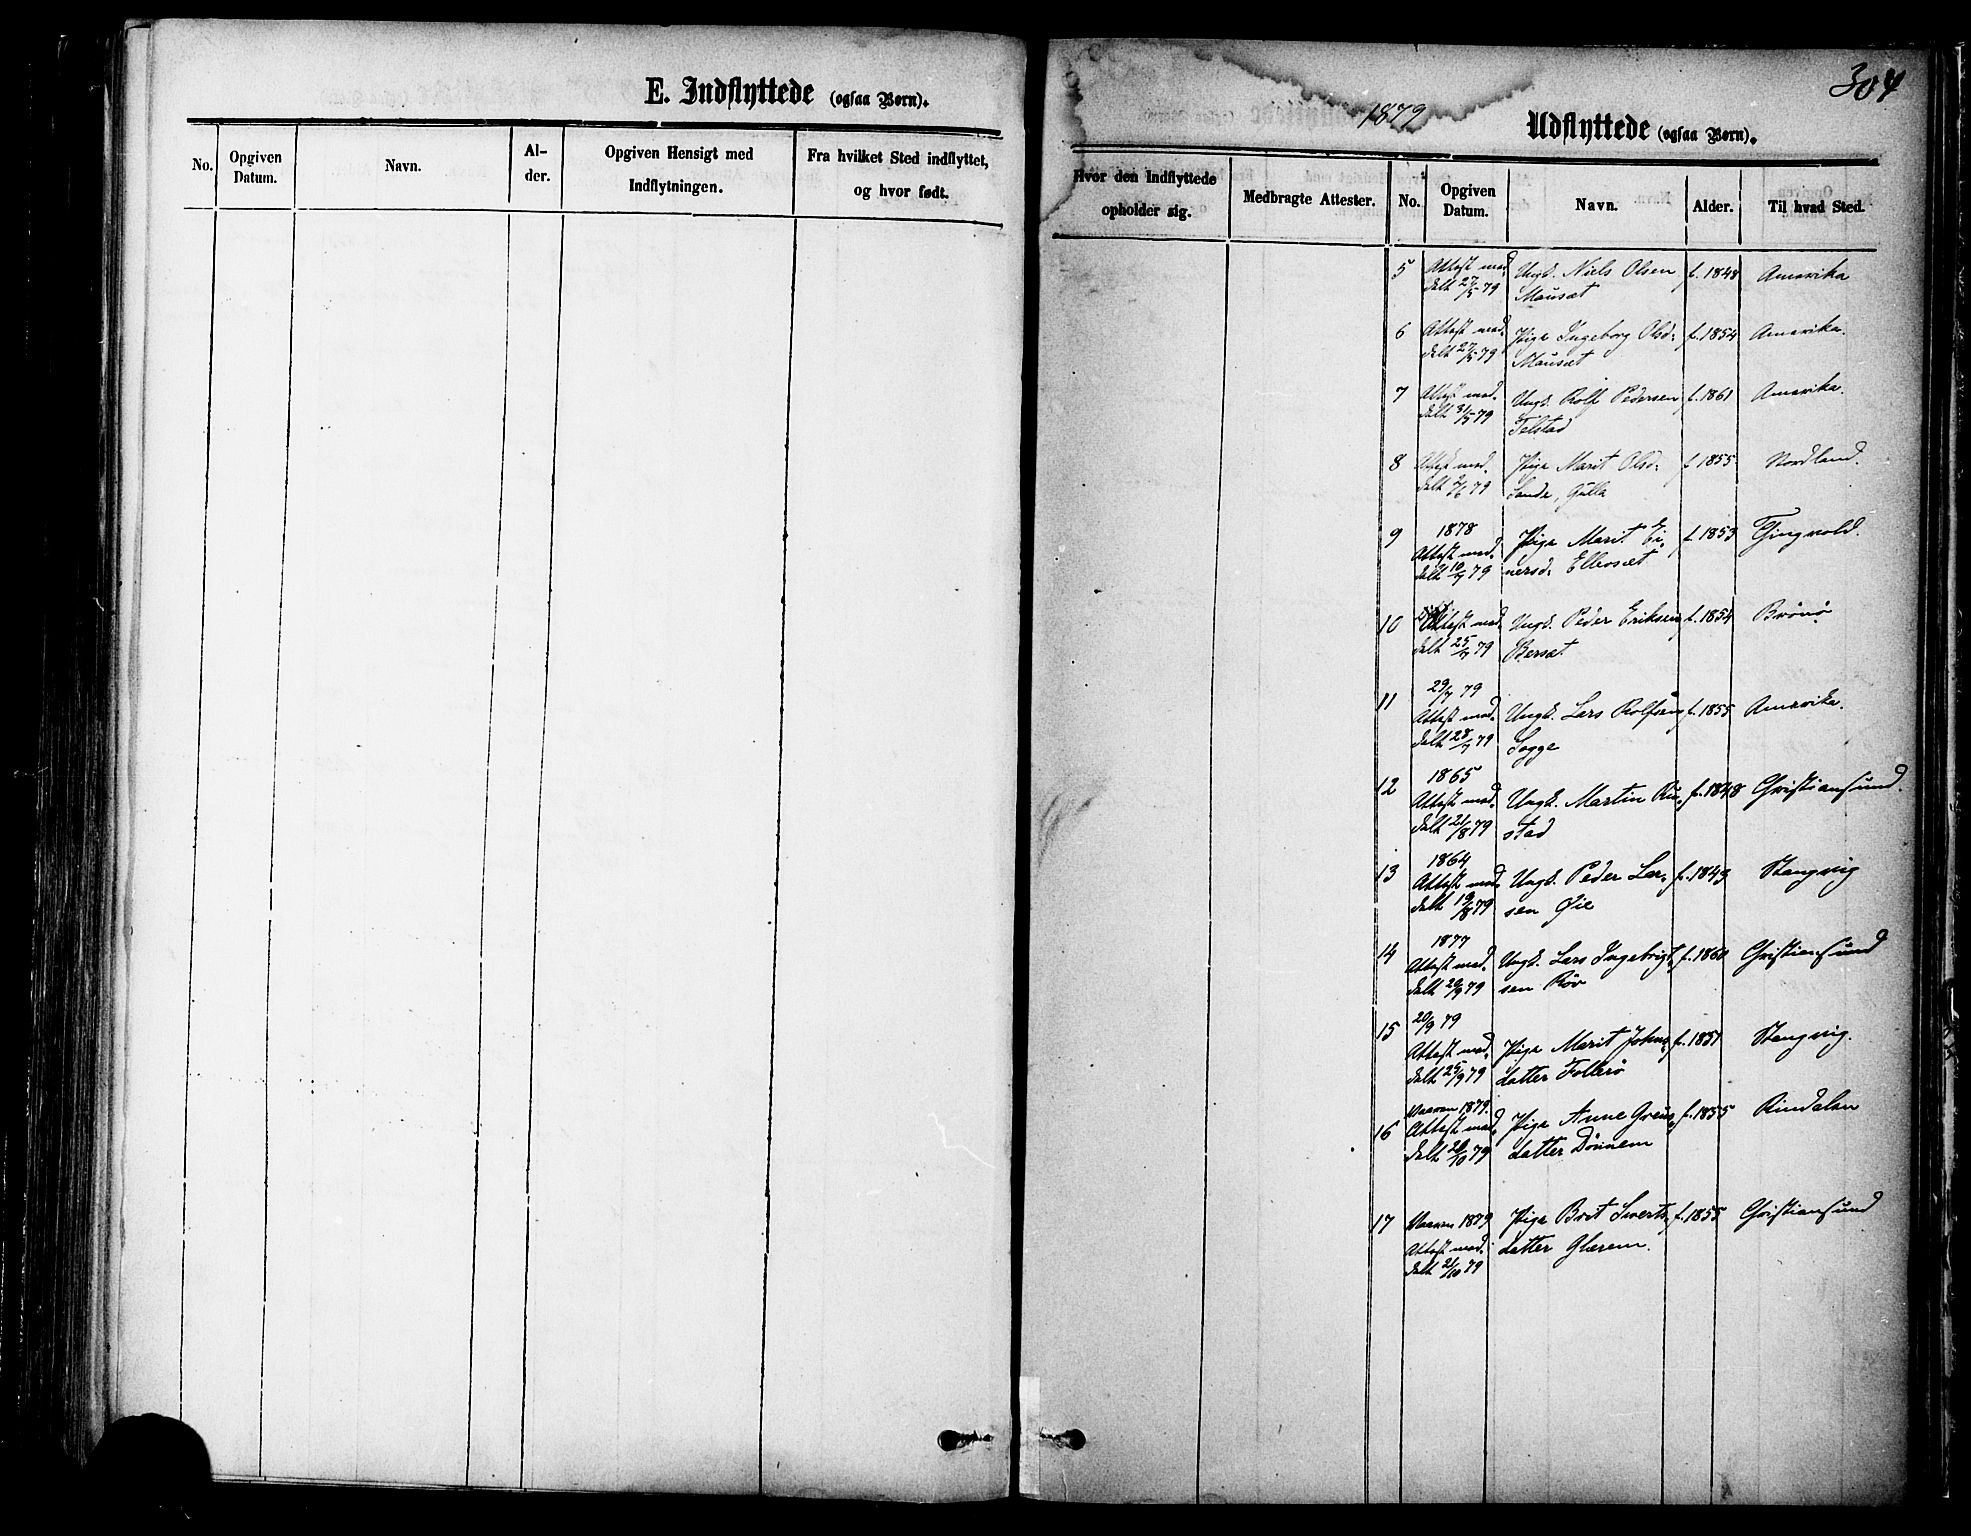 E. Indflyttede (ogsaa Børn).
No.
Opgiven Datum.
Navn.
Al-
der.
Opgiven Hensigt med
Indflytningen.
Fra hvilket Sted indflyttet,
og hvor født.
304
1879
Udflyttede (ogsaa Børn).
Hvor den Indflyttede
opholder sig.
Medbragte Attester.
No.
Opgiven Datum.
Navn.
Alder.
Til hvad Sted.
5 Attest med- Ungk. Niels Olsen f. 1848 Amerika
delt 27/5 79 Mausæt
6 Attest med- Pige Ingeborg Olsd: f. 1854 Amerika.
delt 27/5 79 Mausæt
7 Attest med- Ungk. Rolf Pedersen f. 1861 Amerika.
delt 31/5 79 Telstad
8 Attest med- Pige Marit Olsd: f. 1855 Nordland.
delt 79 Sande, Gulla
1878
9 Attest med- Pige Marit Ei- f. 1853 Thingvold.
delt 10/7 79 nersd: Ellevset
10 Attest med- Ungk. Peder Eriksen f. 1854 Brönö
delt 25/7 79 Bersæt
29/7 79
11 Attest med- Ungk. Lars Rolfsen f. 1855 Amerika.
delt 28/7 79 Sogge
1865
12 Attest med- Ungk. Martin Ru- f. 1848 Christiansund.
delt 21/8 79 stad
1864
13 Attest med- Ungk. Peder Lar- f. 1843 Stangvig
delt 19/8 79 sen Øie
1877
14 Attest med- Ungk. Lars Ingebrigt- f. 1860 Christiansund
delt 20/9 79 sen Röv
20/9 79
15 Attest med- Pige Marit Johns- f. 1851 Stangvig.
delt 25/9 79 datter Follerö
Vaaren 1879.
16 Attest med- Pige Anne f. 1855 Rindalen
delt 79 datter Dönnem
17 Vaaren 1879 Pige Brit Siverts- f. 1855 Christiansund
Attest med- datter Glærem.
delt 21/10 79